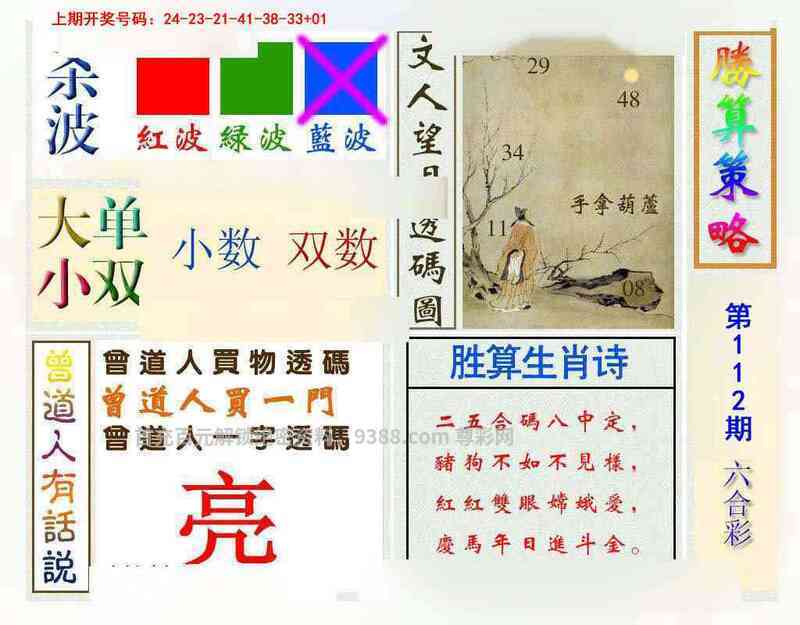 上期开奖号码：24-23-21-41-38-33+01
杀波
紅波 緑波 藍波
大单
小双
小数 双数
曾道人有話說
曾道人買物透碼
曾道人買一門
曾道人一字透碼
亮
文人望日
透碼圖
29
48
34
手拿葫蘆
11
08
胜算生肖诗
二五合碼八中定，
豬狗不如不見樣，
紅紅雙眼嫦娥愛，
慶馬年日進斗金。
勝算策略
第112期
六合彩
9388.com 尊彩网